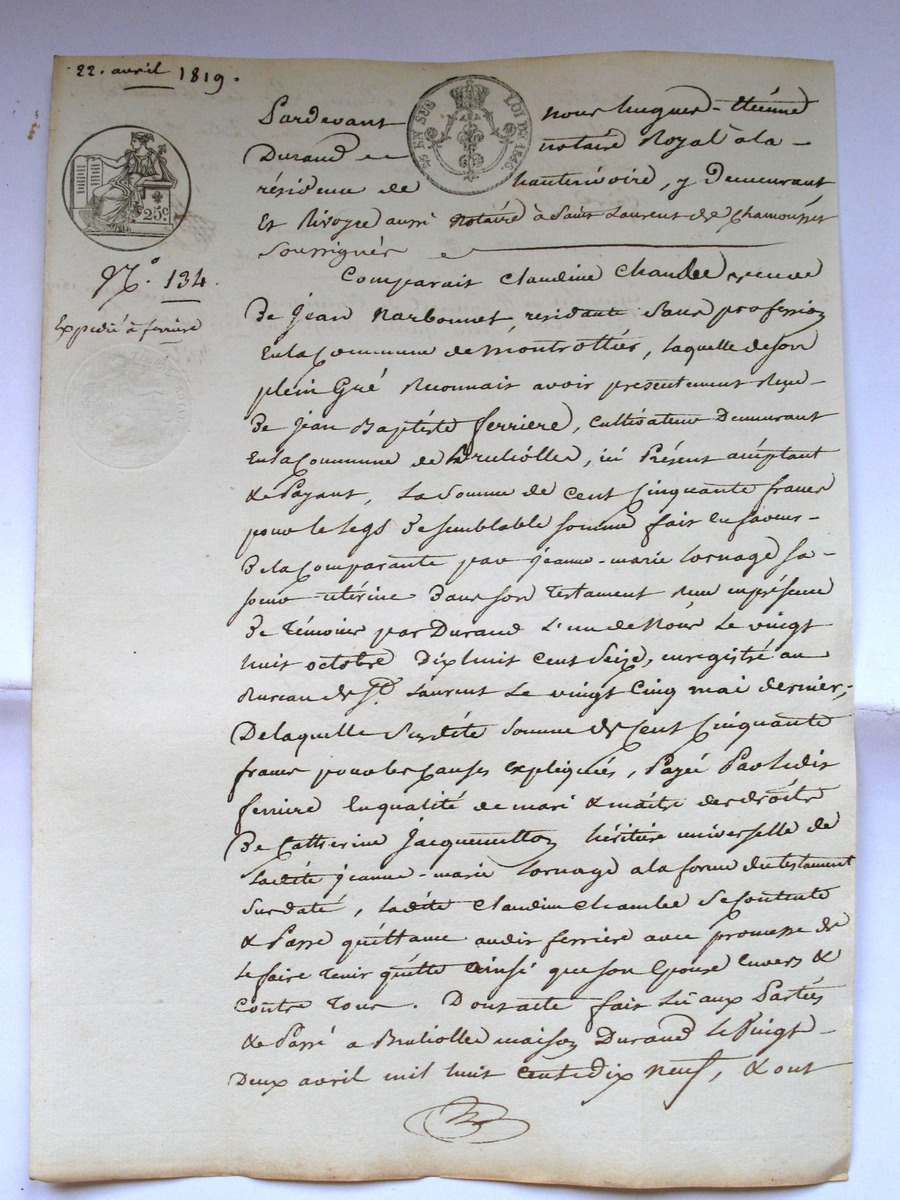 22. avril 1819.
EN SUS LOI DE 1816.
25c
N.º 134.
Expédié à ferrière
Pardevant nous hugues-Etienne
Durand notaire Royal à la
résidence de hauterivoire, y Demeurant
Et Rivoyre aussi Notaire à Saint Laurent de Chamousset
Soussignés
Comparait Claudine Chambe veuve
De Jean Narbonnet, résidante Sans profession
En la Commune de Montrottier, laquelle de son
plein Gré Reconnait avoir présentement Reçu
De Jean Baptiste ferrière, cultivateur Demeurant
En la Commune de Brulliolle, ici Présent acceptant
& Payant, La Somme de Cent Cinquante francs
pour le legs De semblable somme fait en faveur
De la Comparante par jeanne-marie Lornage sa
soeur utérine Dans son Testament Reçu en présence
De Témoins par Durand L'un de Nous Le vingt
huit octobre Dix huit Cent Seize, enregistré au
Bureau de St. Laurent Le vingt Cinq mai dernier,
De laquelle Susdite Somme de Cent Cinquante
francs pour les Causes expliquées, Payée Par ledit
ferrière En qualité de mari & maître des droits
De Catherine Jacquemetton héritière universelle de
Ladite jeanne-marie Lornage a la forme du testament
Sus daté, Ladite Claudine Chambe Se Contente
& Passe quittance audit ferrière avec promesse de
Le faire Tenir quitte ainsi que son Epouse Envers &
Contre Tous. Dont acte fait Lu aux Parties
& Passé a Brulliolle maison Durand Le Vingt
Deux avril mil huit Cent dix neuf, & ont